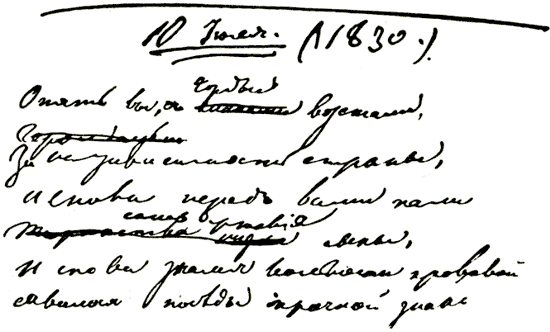 10 Июля. (1830.)
гордые
Опять вы, возстали,
За независимость страны,
И снова передъ вами пали
самодержавія
сыны,
И снова знамя вольности кровавой
явилося победы мрачной знакъ